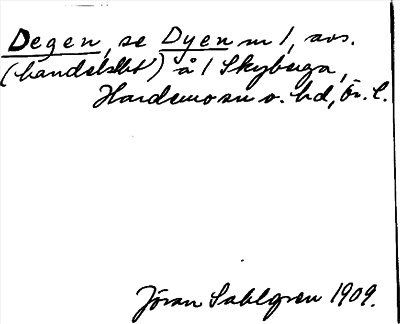 Degen, se Dyen n 1, avs.
(handelslht) å 1 Skyberga,
Hardemo sn o. hd, Ör. l.
Jöran Sahlgren 1909.